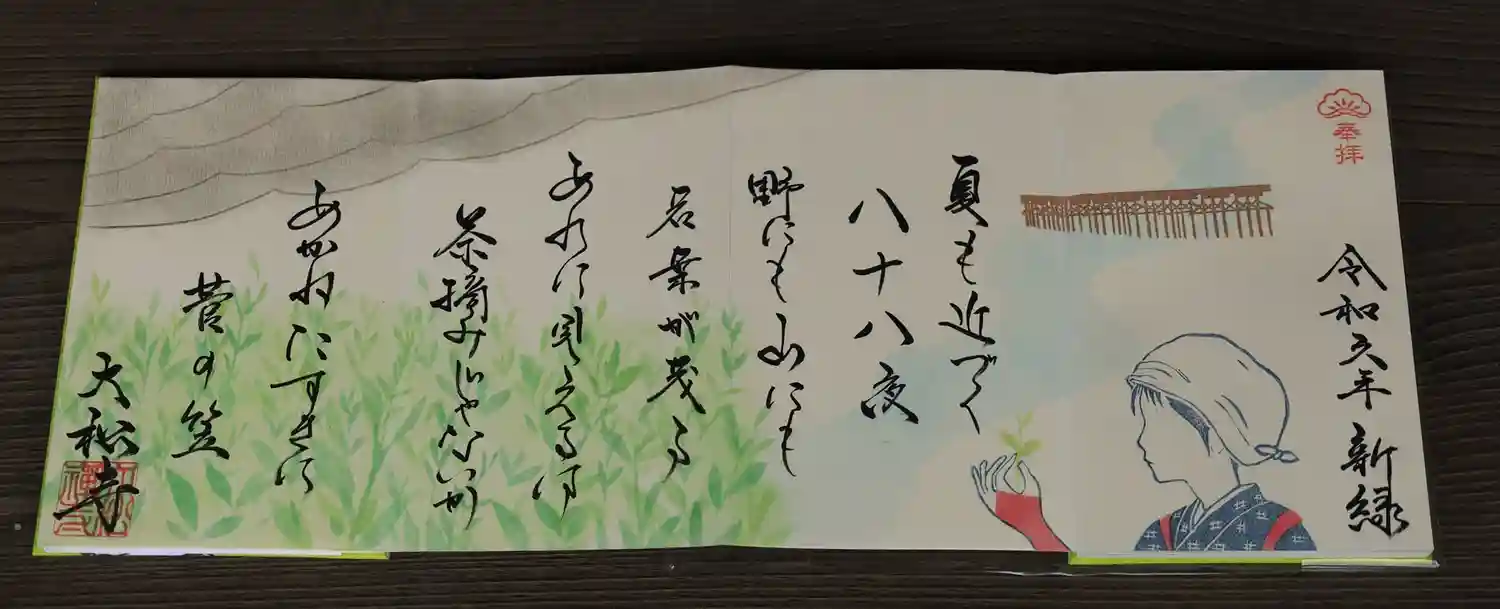 奉拝
令和五年 新緑
夏も近づく
八十八夜
野にも山にも
若葉が茂る
あれに見えるは
茶摘みじゃないか
あかねだすきに
菅の笠
大松寺